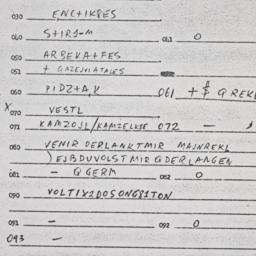 030 ENC+IKBES
040 S+IRJ-M 043 0
050 ARBEKA+FES
051 + GAZEJVLATALES
060 PIDZ+A,K 061 +
X 070 VESTL
071 KAMZOJL/KAMZELKSE 072 -
080 VENIR DERLANKTMIR MAJNREKL
) EJBDUVOLSTMIR QDERLANGEN
081 - QGERM 082 0
090 VOLTIXZDOSONG81TON
091 - 092 0
093 -